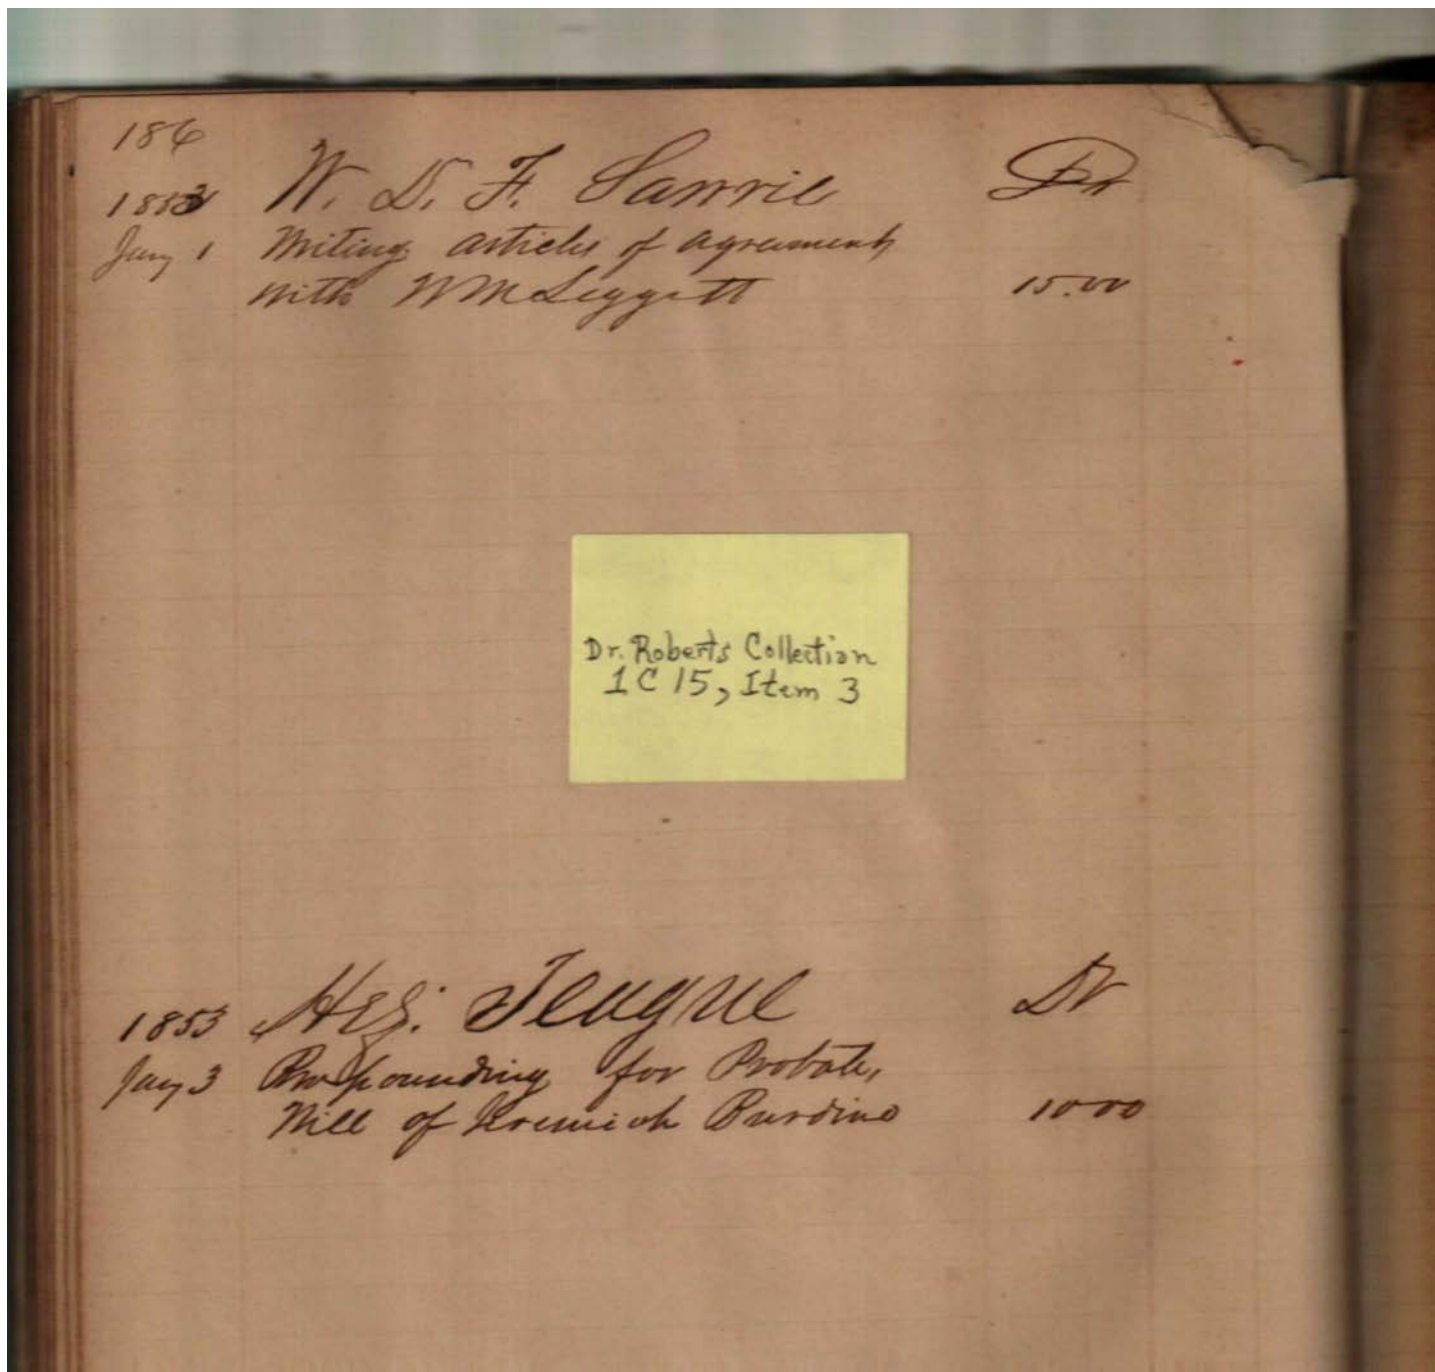 186
1853 W. D. F. Sawrie Dr
Jany 1 Writing articles of agreement
with Wm Leggett 15.00
Dr. Roberts Collection
1 C 15, Item 3
1853 Hez: Teague Dr
Jany 3 Propounding for Probate,
Will of Jeremiah Burdine 10 00